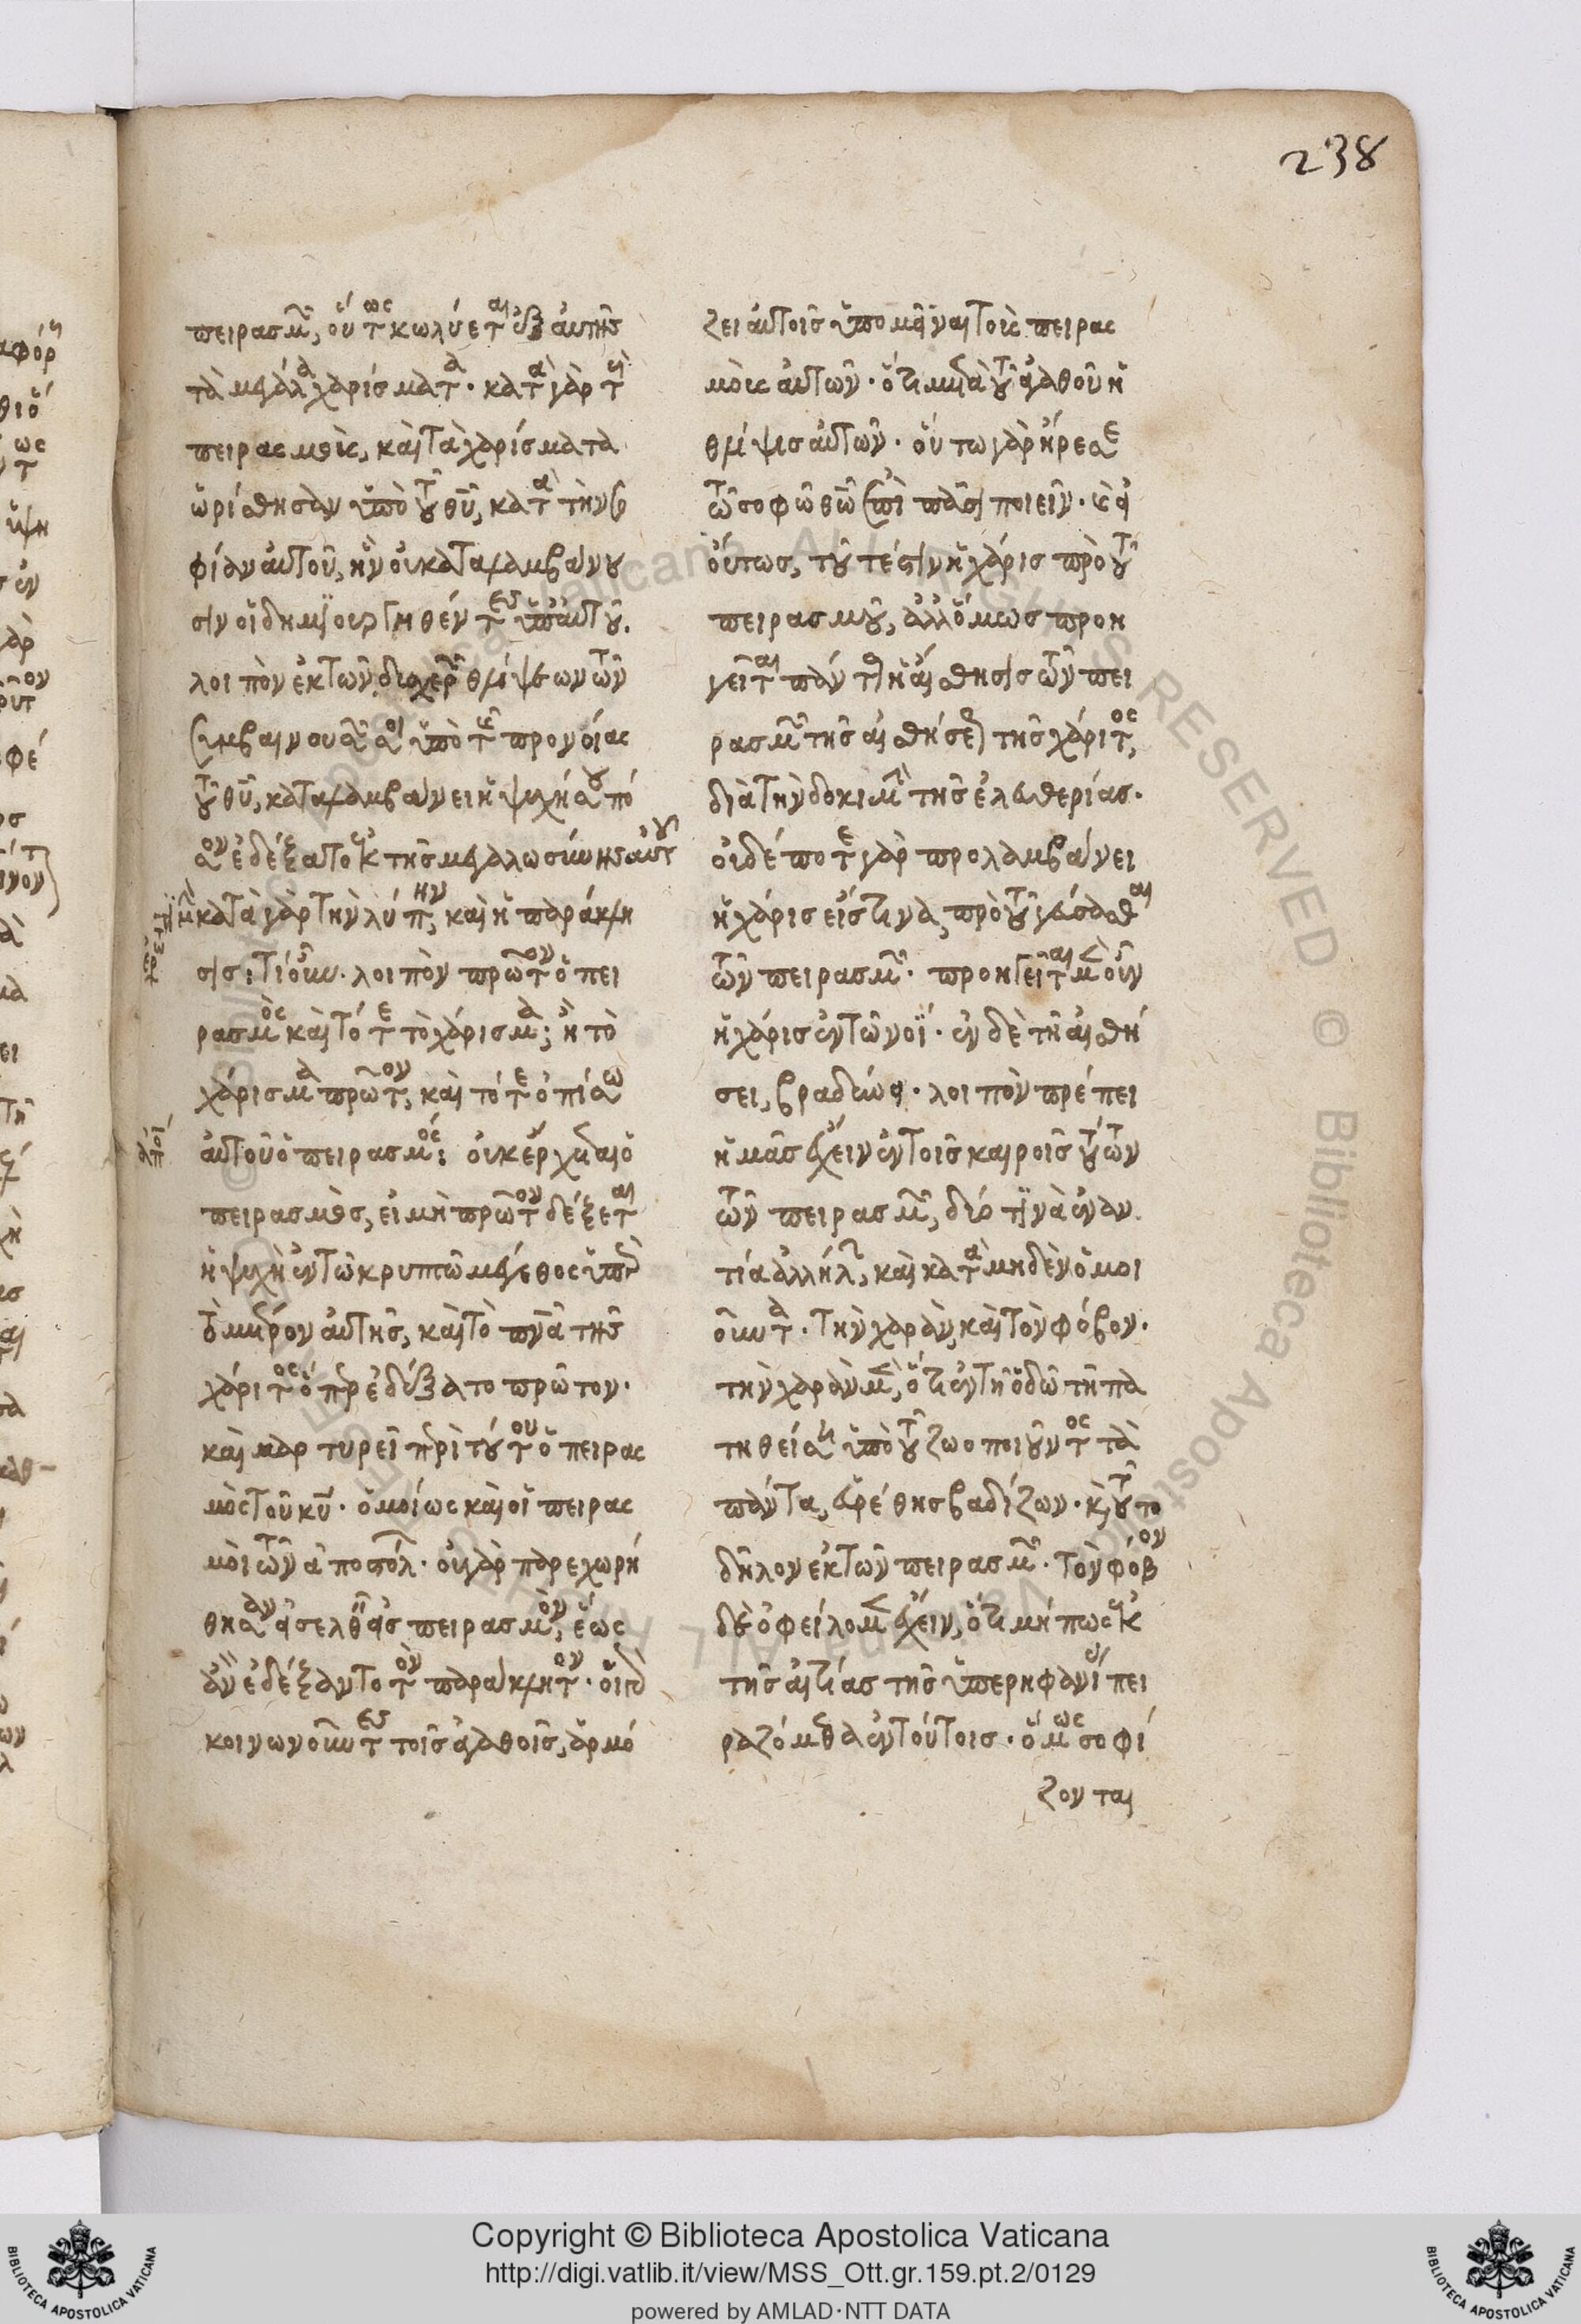 238
πειρασμῶν, οὕτως κωλύεται ἐξ αὐτῆς
τὰ μεγάλα χαρίσματα. κατὰ γὰρ τοὺς
πειρασμοὺς, καὶ τὰ χαρίσματα
ὡρίσθησαν ὑπὸ τοῦ θυ, κατὰ τὴν σο
φίαν αὐτοῦ, ἣν οὐ καταλαμβάνου
σιν οἱ δημιουργηθέντες ὑπ αὐτοῦ.
λοιπὸν ἐκ τῶν δυσχερῶν θλίψεων τῶν
συμβαινουσῶν σοι ὑπὸ τῆς προνοίας
τοῦ θυ, καταλαμβάνει ἡ ψυχή σου πό
σον ἐδέξατο ἐκ τῆς μεγαλωσύνης αὐτοῦ
κατὰ γὰρ τὴν λύπην, καὶ ἡ παράκλη
σις: τί οὖν. λοιπὸν πρῶτον ὁ πει
ρασμὸς καὶ τότε τὸ χάρισμα; ἢ τὸ
χάρισμα πρῶτον, καὶ τότε ὀπίσω
αὐτοῦ ὁ πειρασμός: οὐκ ἔρχεται ὁ
πειρασμὸς, εἰ μὴ πρῶτον δέξεται
ἡ ψυχὴ ἐν τῷ κρυπτῷ μέγεθος ὑπὲρ
τὸ μέτρον αὐτῆς, καὶ τὸ πνα τῆς
χάριτος ὅπερ ἐδέξατο πρῶτον.
καὶ μαρτυρεῖ περὶ τούτου ὁ πειρας
μὸς τοῦ κυ. ὁμοίως καὶ οἱ πειρας
μοὶ τῶν ἀποστόλων. οὐ γὰρ παρεχωρή
θησαν εἰσελθεῖν εἰς πειρασμὸν, ἕως
ἂν ἐδέξαντο τὸν παράκλητον. οἱ γὰρ
κοινωνοῦντες τοῖς ἀγαθοῖς, ἁρμό
ζει αὐτοῖς ὑπομεῖναι τοὺς πειρας
μοὺς αὐτῶν. ὅτι μετὰ τοῦ ἀγαθοῦ ἡ
θλίψις αὐτῶν. οὕτω γὰρ ἤρεσε
τῷ σοφῷ θῶ ἐπὶ πᾶσι ποιεῖν. καὶ εἰ
οὕτως, τουτέστιν ἡ χάρις πρὸ τοῦ
πειρασμοῦ, ἀλλ ὅμως προη
γεῖται πάντως ἡ αἴσθησις τῶν πει
ρασμῶν τῆς αἰσθήσεως τῆς χάριτος,
διὰ τὴν δοκιμὴν τῆς ἐλευθερίας.
οὐδέποτε γὰρ προλαμβάνει
ἡ χάρις εἴς τινα, πρὸ τοῦ γεύσασθαι
τῶν πειρασμῶν. προηγεῖται μὲν οὖν
ἡ χάρις ἐν τῷ νοΐ. ἐν δὲ τῇ αἰσθή
σει, βραδύνει. λοιπὸν πρέπει
ἡμᾶς ἔχειν ἐν τοῖς καιροῖς τούτων
τῶν πειρασμῶν, δύο τινὰ ἐναν
τία ἀλλήλων, καὶ κατὰ μηδὲν ὅμοι
οῦντα. τὴν χαρὰν, καὶ τὸν φόβον.
τὴν χαρὰν μὲν, ὅτι ἐν τῇ ὁδῷ τῇ πα
τηθείσῃ ὑπὸ τοῦ ζωοποιοῦντος τὰ
πάντα, εὑρέθης βαδίζων. καὶ τοῦτο
δῆλον ἐκ τῶν πειρασμῶν. τὸν φόβον
δὲ ὀφείλομεν ἔχειν, ὅτι μήπως ἐκ
τῆς αἰτίας τῆς ὑπερηφανίας πει
ραζόμεθα ἐν τούτοις. ὅμως σοφί
ζονται
Copyright © Biblioteca Apostolica Vaticana
http://digi.vatlib.it/view/MSS_Ott.gr.159.pt.2/0129
powered by AMLAD·NTT DATA